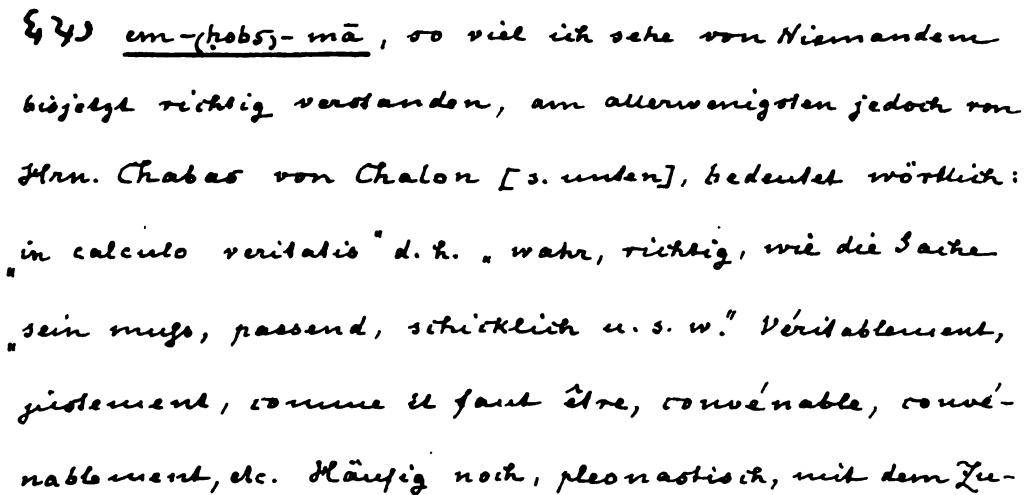 em-(ḥobs)-mā, so viel ich sehe von Niemandem
bisjetzt richtig verstanden, am allerwenigsten jedoch von
Hrn. Chabas von Chalon [s. unten], bedeutet wörtlich:
„in calculo veritatis" d. h. „wahr, richtig, wie die Sache
„sein muſs, passend, schicklich u. s. w." Véritablement,
justement, comme il faut être, convénable, convé-
nablement, etc. Häufig noch, pleonastisch, mit dem Zu-